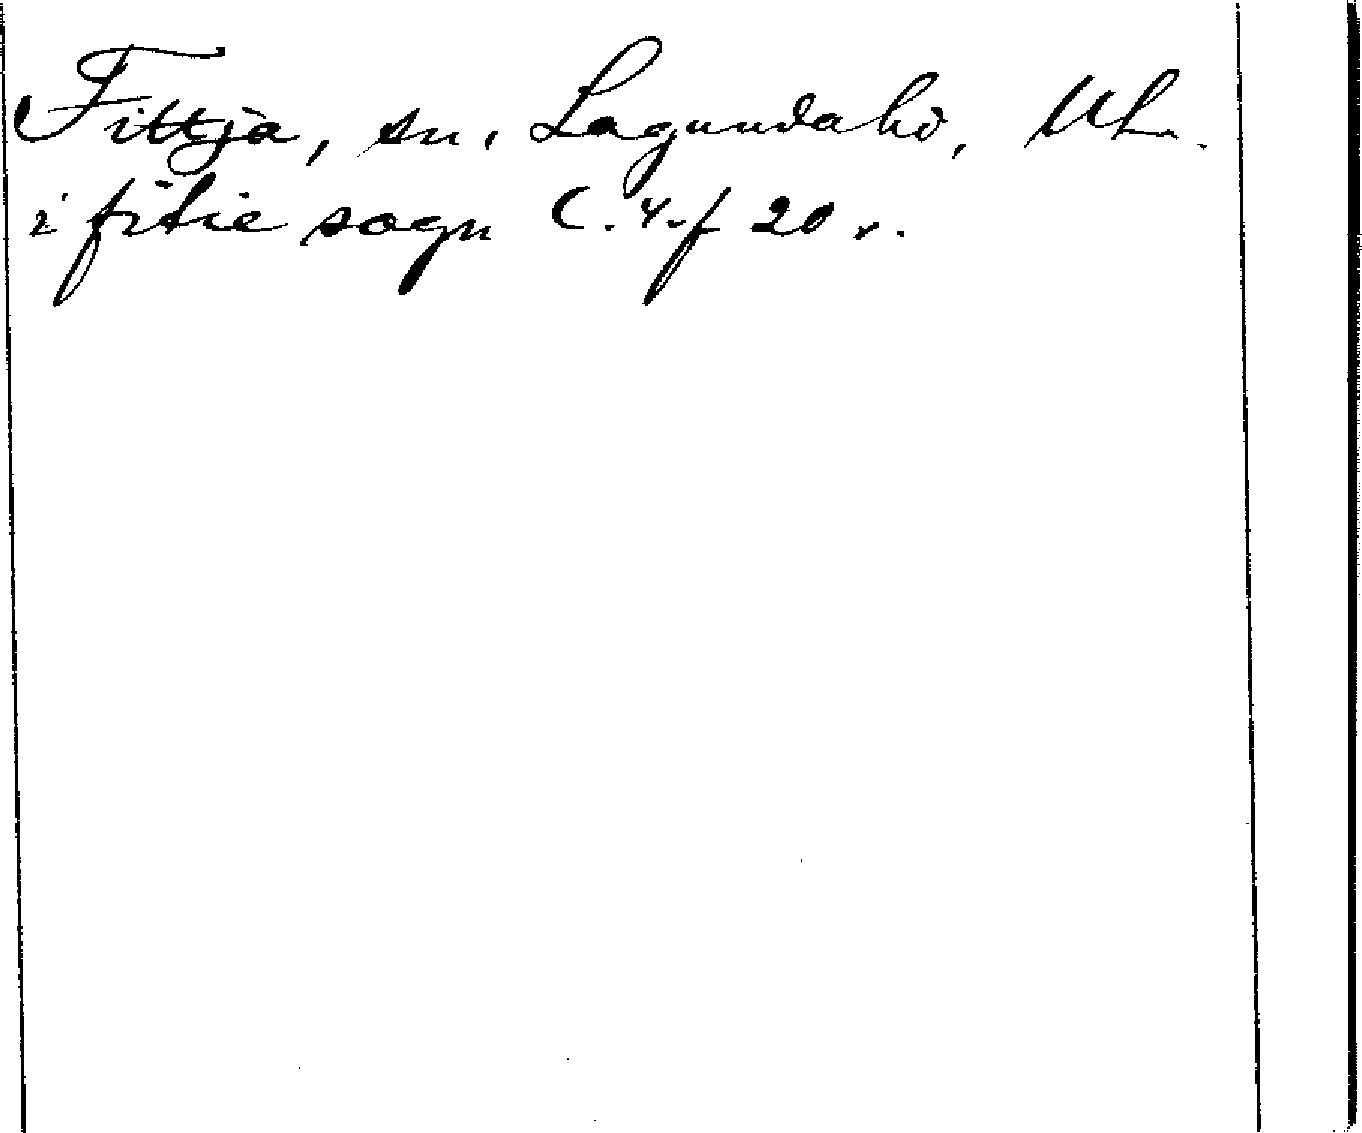 Fittja, sn, Lagunda hd, Upl.
i fitie sogn C. 4. f 20 r.